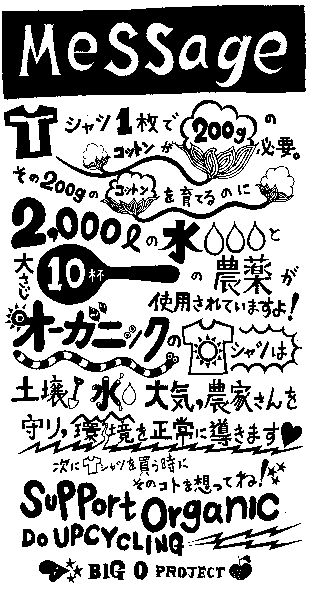 Message
Tシャツ1枚で200gの
コットンが必要。
その200gのコットンを育てるのに
2,000ℓの水と
大さじ10杯の農薬が
使用されていますよ!
オーガニックのTシャツは
土壌、水、大気、農家さんを
守り、環境を正常に導きます
次にTシャツを買う時に
そのコトを想ってね!
Support Organic
Do UPCYCLING
BIG O PROJECT